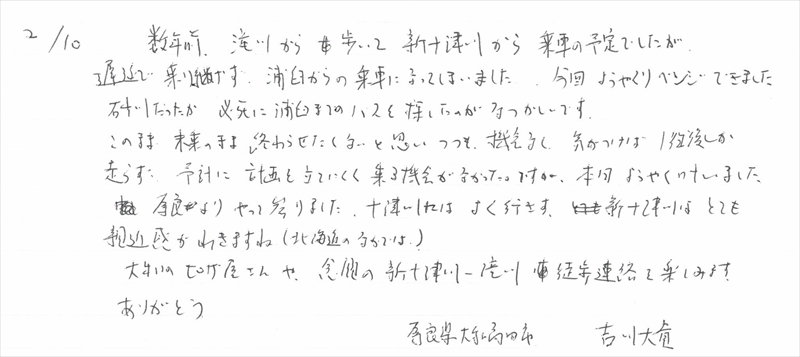 2/10 数年前、滝川から歩いて 新十津川から 乗車の予定でしたが、
遅延で乗り継げず、浦臼からの乗車になってしまいました。今回 ようやくリベンジできました
砂川だったか 必死に浦臼までのバスを探したのがなつかしいです。
このまま 未乗のまま 終わらせたくないと思いつつも、機会なく、気がつけば 1往復しか
走らず、予計に 計画を立てにくく 乗る機会がなかったですが、本日 ようやく叶いました
奈良より やって参りました。十津川村は よく行きます、新十津川は とても
親近感がわきますね(北海道の中では)
念願の新十津川–滝川 徒歩連絡を楽しみます
ありがとう
奈良県大和高田市 吉川大貴